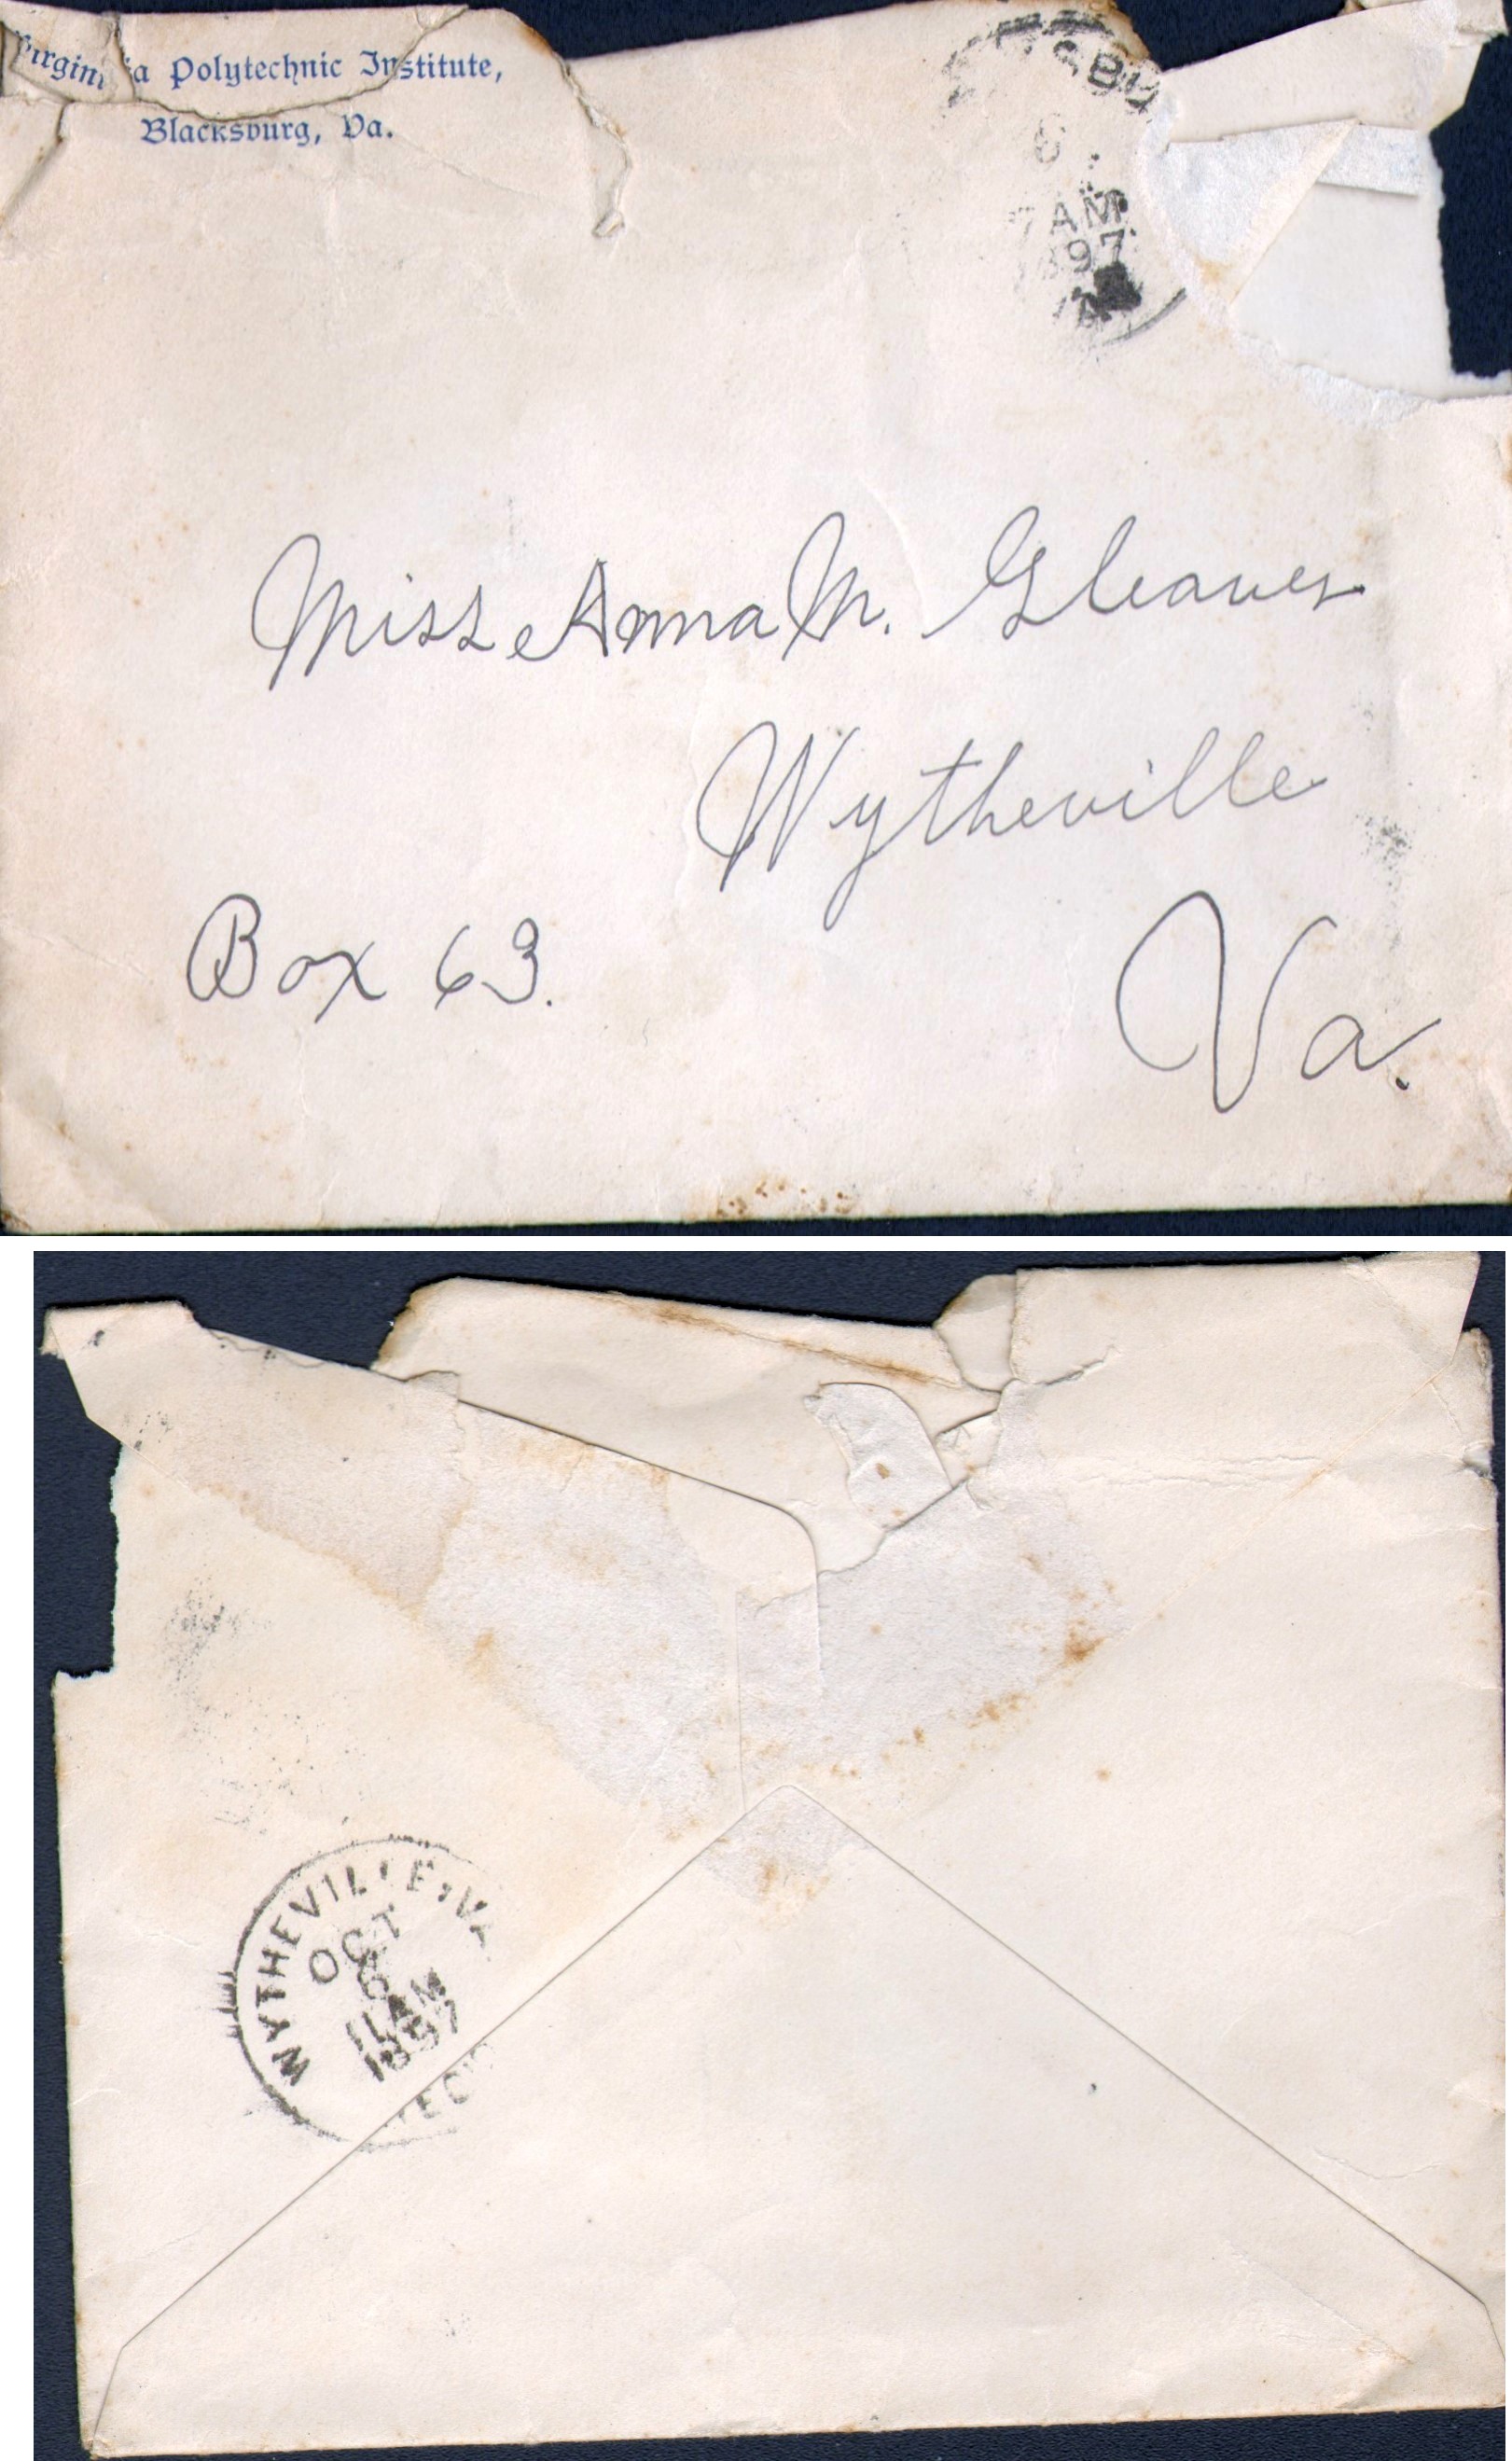 Virginia Polytechnic Institute,
Blacksburg, Va.
SBU
6
7 AM
1897
VA
Miss Anna M. Gleaves
Wytheville
Box 63.
Va.
WYTHEVILLE, VA
OCT
6
11 AM
1897
REC'D